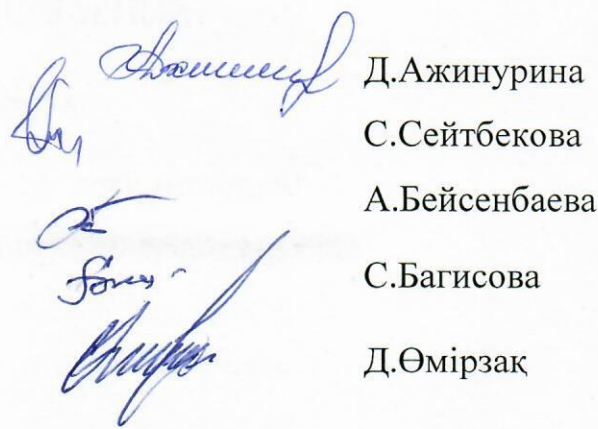 Д.Ажинурина
С.Сейтбекова
А.Бейсенбаева
С.Багисова
Д.Өмірзақ